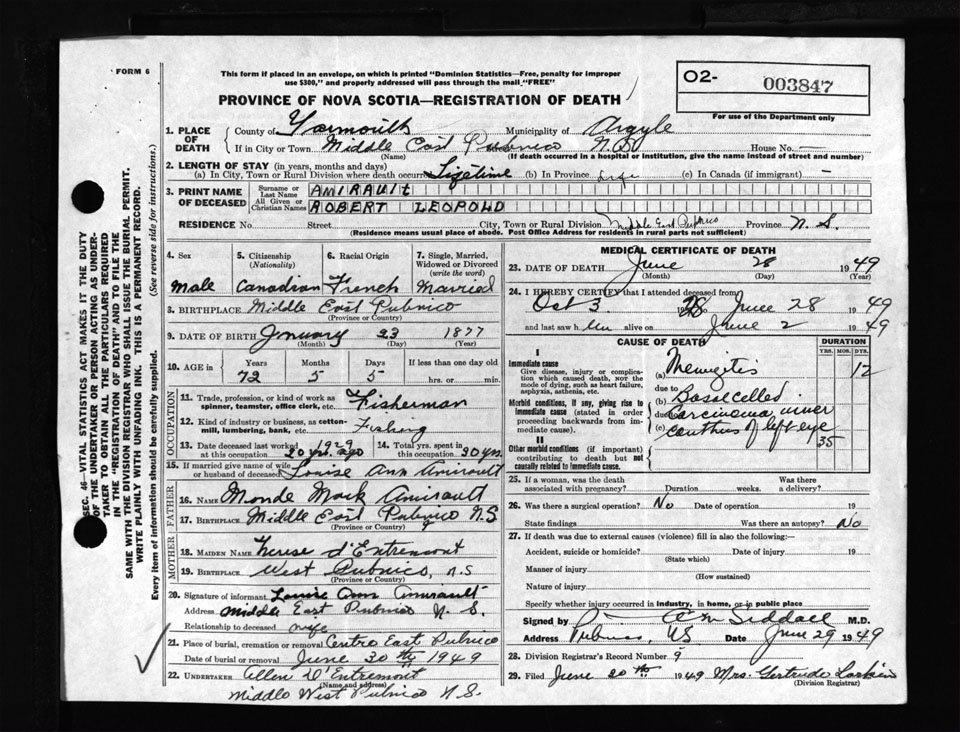 FORM 6
This form if placed in an envelope, on which is printed "Dominion Statistics—Free, penalty for improper
use $300," and properly addressed will pass through the mail "FREE"
PROVINCE OF NOVA SCOTIA—REGISTRATION OF DEATH
02- 003847
For use of the Department only
1. PLACE OF DEATH { County of Yarmouth Municipality of Argyle
If in City or Town Middle East Pubnico N.S. House No. —
(Name) (If death occurred in a hospital or institution, give the name instead of street and number)
2. LENGTH OF STAY (in years, months and days)
(a) In City, Town or Rural Division where death occurred Lifetime (b) In Province Life (c) In Canada (if immigrant) —
3. PRINT NAME OF DECEASED { Surname or Last Name AMIRAULT
All Given or Christian Names ROBERT LEOPOLD
RESIDENCE No. Street City, Town or Rural Division Middle East Pubnico Province N.S.
(Residence means usual place of abode. Post Office Address for residents in rural parts not sufficient)
4. Sex 5. Citizenship (Nationality) 6. Racial Origin 7. Single, Married, Widowed or Divorced (write the word)
Male Canadian French Married
8. BIRTHPLACE Middle East Pubnico
(Province or Country)
9. DATE OF BIRTH January 23 1877
(Month) (Day) (Year)
10. AGE in { Years Months Days If less than one day old
72 5 5 hrs. or min.
OCCUPATION
11. Trade, profession or kind of work as spinner, teamster, office clerk, etc. Fisherman
12. Kind of industry or business, as cotton-mill, lumbering, bank, etc. Fishing
13. Date deceased last worked at this occupation 1929 20 yrs. ago 14. Total yrs. spent in this occupation 30 yrs.
15. If married give name of wife or husband of deceased Louise Ann Amirault
FATHER
16. NAME Monde Mark Amirault
17. BIRTHPLACE Middle East Pubnico N.S
(Province or Country)
MOTHER
18. MAIDEN NAME d'Entremont
19. BIRTHPLACE West Pubnico, N.S
(Province or Country)
20. Signature of informant Louise Ann Amirault
Address Middle East Pubnico N. S.
Relationship to deceased wife
21. Place of burial, cremation or removal Centre East Pubnico
Date of burial or removal June 30th 1949
22. UNDERTAKER Allen D'Entremont
(Name and address)
Middle West Pubnico N.S.
MEDICAL CERTIFICATE OF DEATH
23. DATE OF DEATH June 28 1949
(Month) (Day) (Year)
24. I HEREBY CERTIFY that I attended deceased from
Oct 3 1948 to June 28 1949
and last saw him alive on June 2 1949
CAUSE OF DEATH DURATION
YRS. MOS. DYS.
I
Immediate cause
Give disease, injury or complication which caused death, not the mode of dying, such as heart failure, asphyxia, asthenia, etc.
(a) Meningitis 12
due to
Morbid conditions, if any, giving rise to immediate cause (stated in order proceeding backwards from immediate cause).
(b) Basal celled
due to carcinoma inner
(c) canthus of left eye
35
II
Other morbid conditions (if important) contributing to death but not causally related to immediate cause.
25. If a woman, was the death associated with pregnancy? Duration weeks. Was there a delivery?
26. Was there a surgical operation? No Date of operation 19
State findings Was there an autopsy? No
27. If death was due to external causes (violence) fill in also the following:
Accident, suicide or homicide? Date of injury 19
(State which)
Manner of injury
(How sustained)
Nature of injury
Specify whether injury occurred in industry, in home, or in public place
Signed by A M Siddall M.D.
Address Pubnico, NS Date June 29 1949
28. Division Registrar's Record Number 9
29. Filed June 20th 1949 Mrs. Gertrude Larkin
(Division Registrar)
SEC. 46—VITAL STATISTICS ACT MAKES IT THE DUTY
OF THE UNDERTAKER OR PERSON ACTING AS UNDERTAKER TO OBTAIN ALL THE PARTICULARS REQUIRED
IN THE "REGISTRATION OF DEATH" AND TO FILE THE
SAME WITH THE DIVISION REGISTRAR WHO SHALL ISSUE THE BURIAL PERMIT.
WRITE PLAINLY WITH UNFADING INK. THIS IS A PERMANENT RECORD.
Every item of information should be carefully supplied. (See reverse side for instructions.)